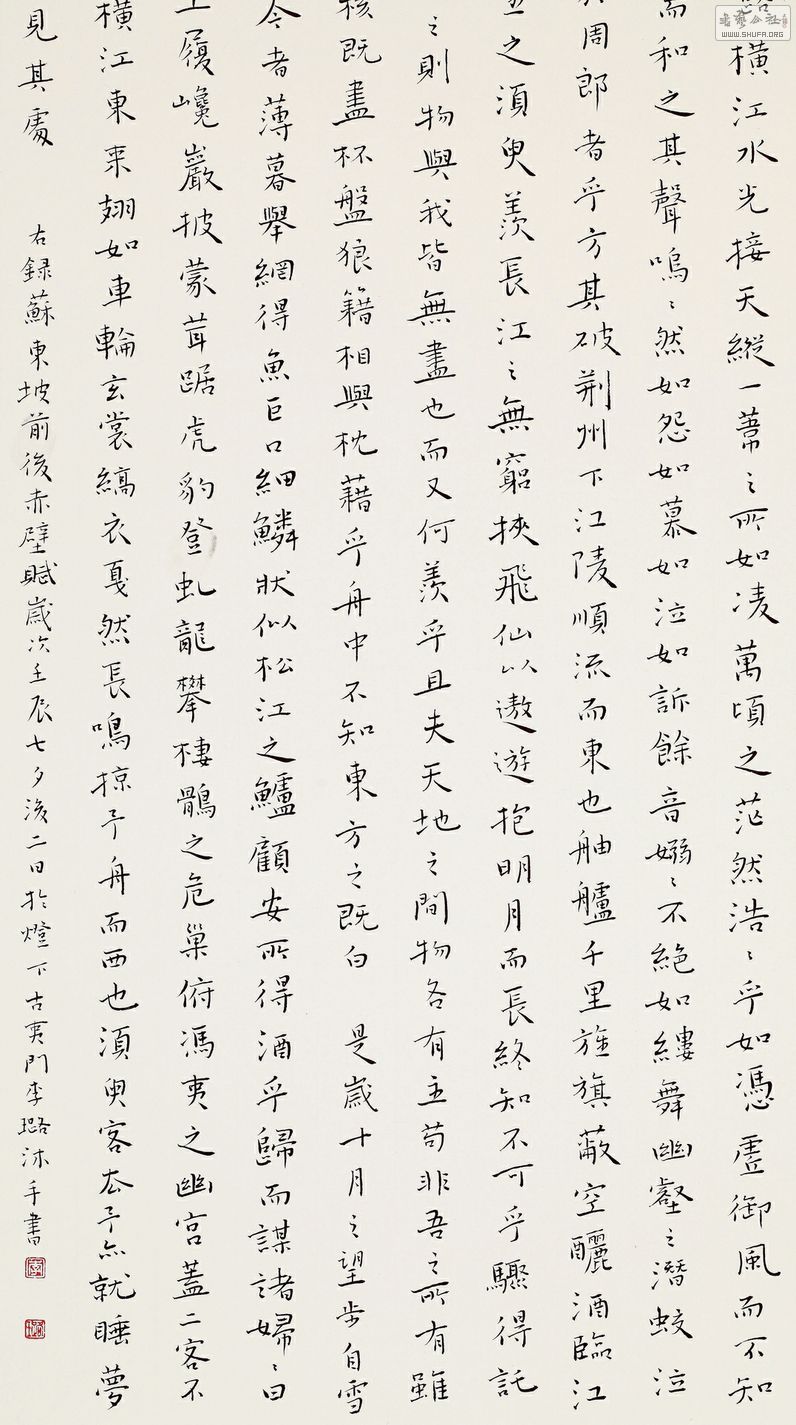 橫江水光接天縱一葦之所如凌萬頃之茫然浩〻乎如憑虛御風而不知
而和之其聲嗚〻然如怨如慕如泣如訴餘音嫋〻不絕如縷舞幽壑之潛蛟泣
於周郎者乎方其破荊州下江陵順流而東也舳艫千里旌旗蔽空釃酒臨江
生之須臾羨長江之無窮挾飛仙以遨遊抱明月而長終知不可乎驟得託
之則物與我皆無盡也而又何羨乎且夫天地之間物各有主苟非吾之所有雖
核既盡杯盤狼籍相與枕藉乎舟中不知東方之既白 是歲十月之望步自雪
今者薄暮舉網得魚巨口細鱗狀似松江之鱸顧安所得酒乎歸而謀諸婦〻曰
上履巉巖披蒙茸踞虎豹登虬龍攀棲鶻之危巢俯馮夷之幽宮蓋二客不
橫江東來翅如車輪玄裳縞衣戛然長鳴掠予舟而西也須臾客去予亦就睡夢
見其處 右錄蘇東坡前後赤壁賦歲次壬辰七夕後二日於燈下古夷門李璐沐手書
WWW.SHUFA.ORG